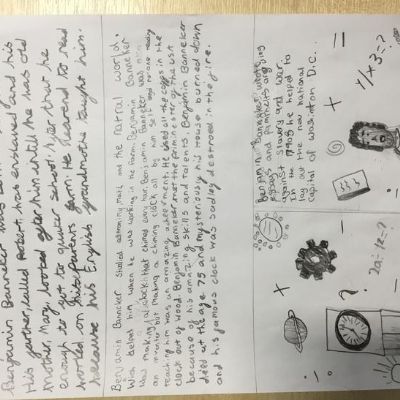 Benjamin Banneker was
His farther, called Robert, has enslaved and his
mother, Mary, looked after him until he was old
enough to go to quaker school. After that he
worked on his Parters farm. He learend to read
because his English grandmother taught him.
Benjamin Banneker studied astronimy, math and the natral world
Wich helped him when he was working in the farm. Benjamin Banneker
was making a clock that chimed every hour. Benjamin Bannaker was n't
an inventer but making a chiming clock all by him self and no one
teaching him was an amazing acheerment. He used all the coggs in the
clock out of wood. Benjamin Banneker met the priminester of the USA
because of his amazing skills and talents. Benjamin Banneker
died at the age 75 and mysteriously his House burned down
and his famous clock was sadley destroed in the fire.
Benjamin Banneker wrote
essays and pamphlets arguing
against slavery and war.
In the 1790s he helped to
lay out the new national
capital of Washinton D.C...
+
=
1/1+3=?
÷
+
?
-
2a÷12=?